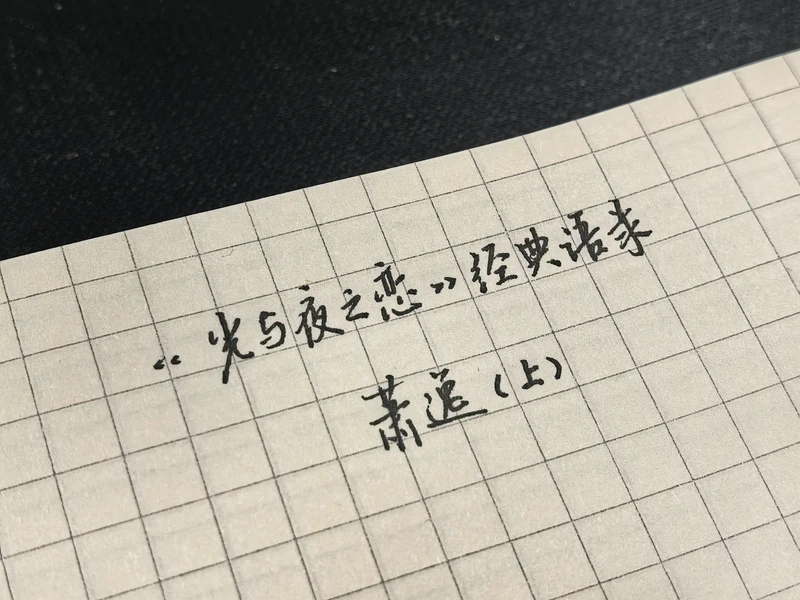 《光与夜之恋》经典语录
萧逸（上）